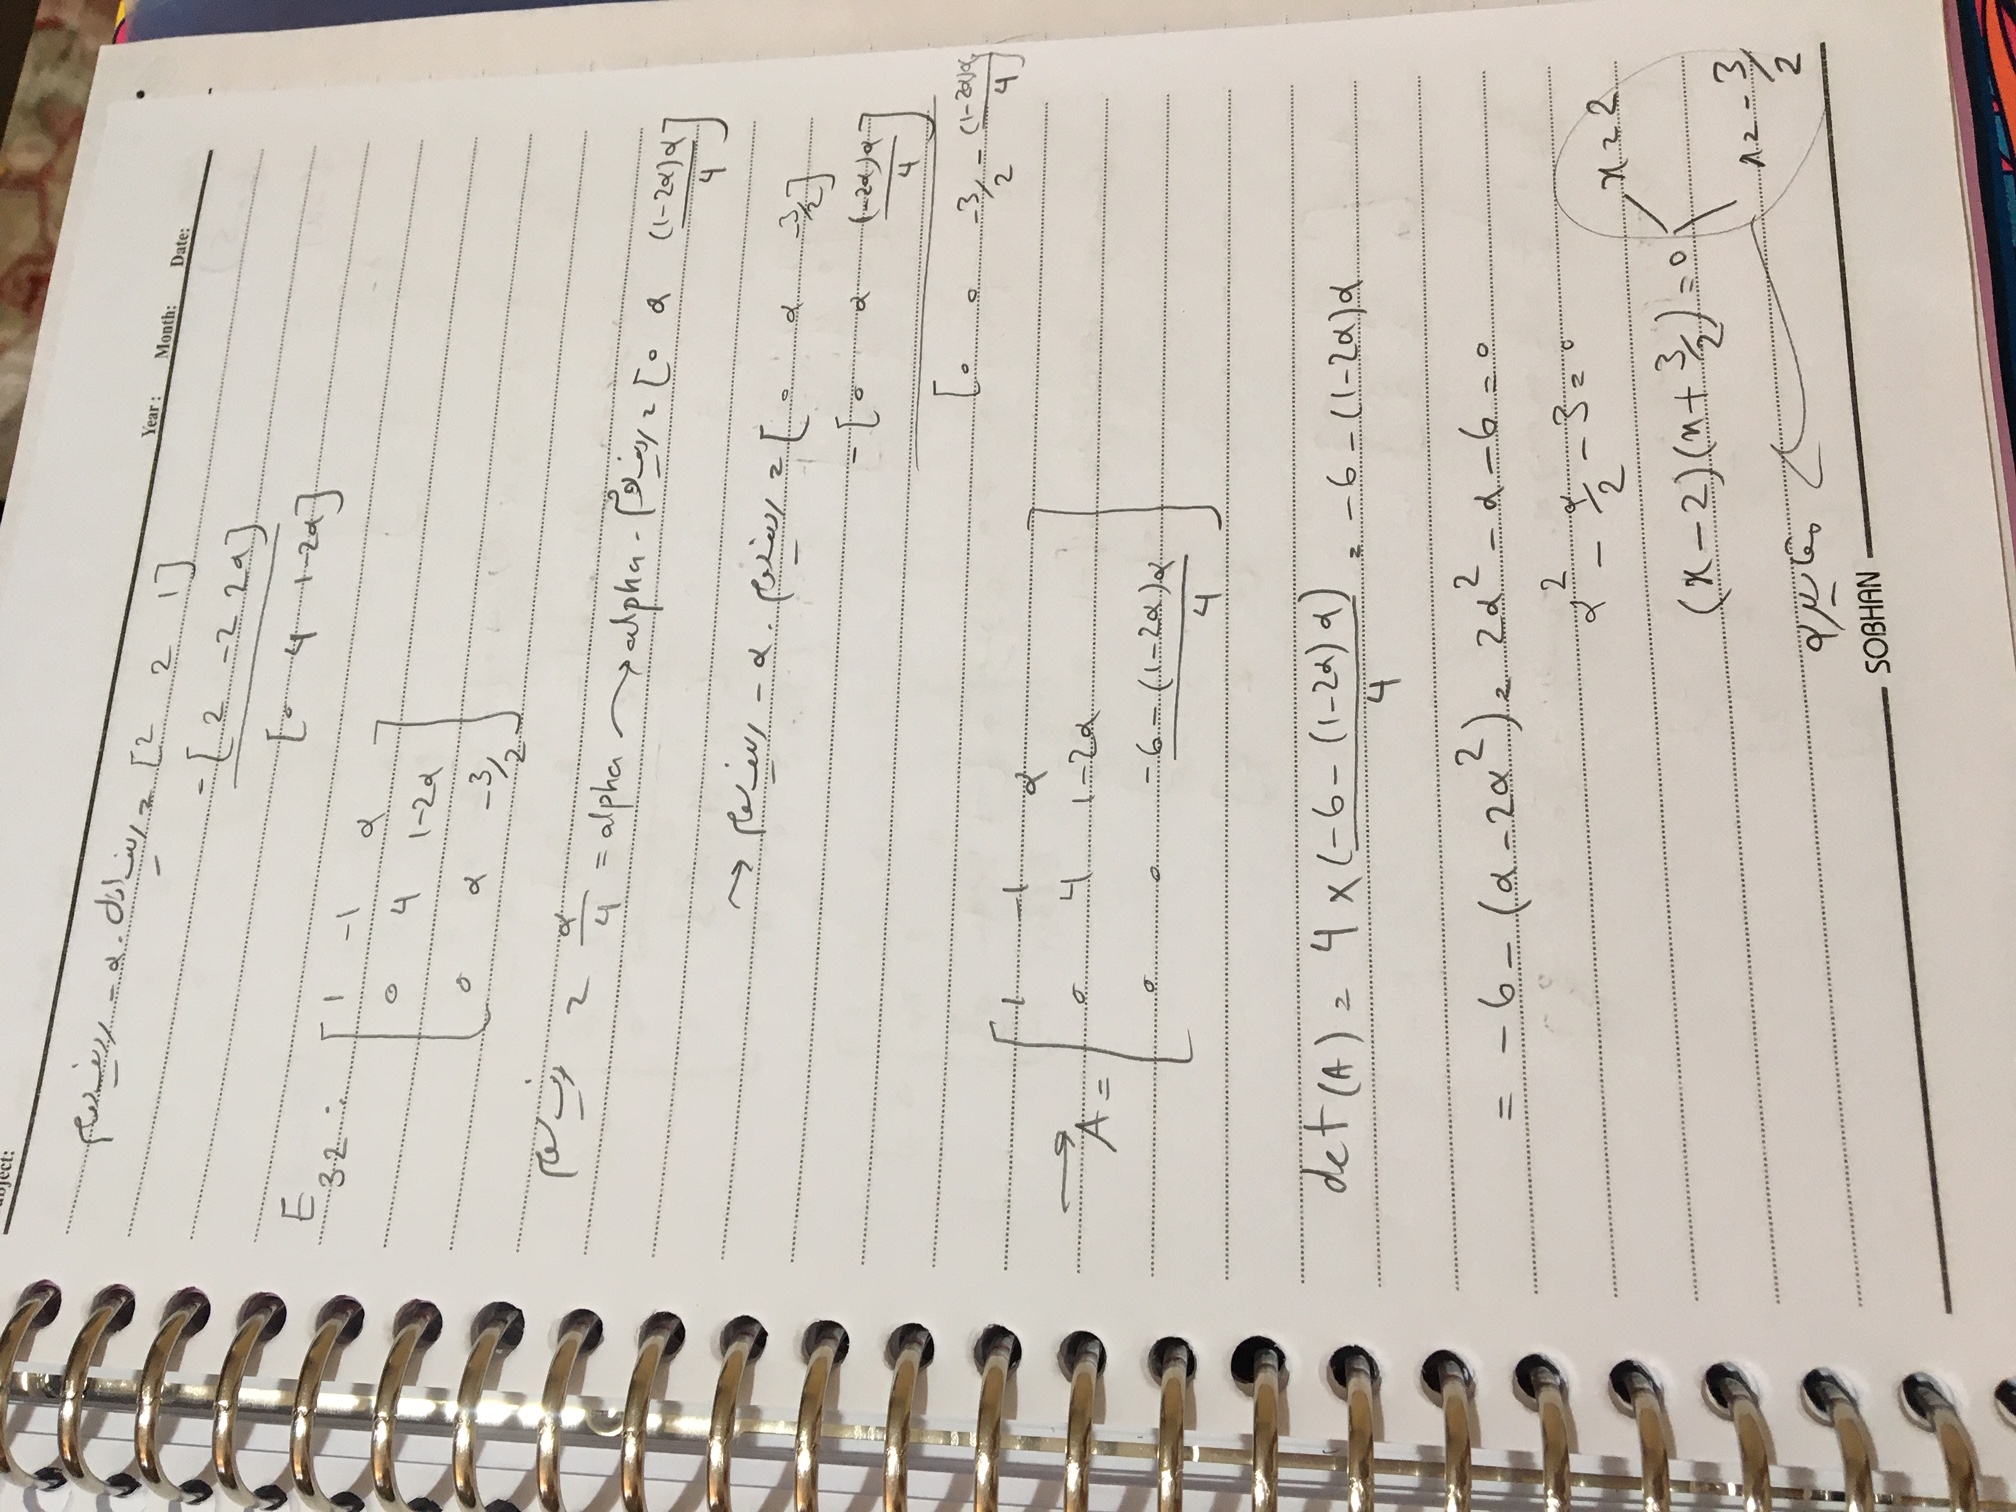 Subject:
Year: Month: Date:
ردیف دوم - α . ردیف اول = [2 2 1]
- [2 -2 2α]
[0 4 1-2α]
E32 :
[1 -1 α
0 4 1-2α
0 α -3/2]
ردیف سوم = α/4 = alpha → alpha - ردیف دوم = [0 α (1-2α)α/4]
→ ردیف سوم - α . ردیف دوم = [0 α -3/2]
- [0 α (1-2α)α/4]
[0 0 -3/2 - (1-2α)α/4]
→ A = [1 -1 α
0 4 1-2α
0 0 -6-(1-2α)α/4]
det(A) = 4 × (-6-(1-2α)α)/4 = -6-(1-2α)α
= -6-(α-2α²) = 2α²-α-6=0
α² - α/2 - 3 = 0
x = 2
(x-2)(x+3/2)=0
x = -3/2
مقادیر α
SOBHAN